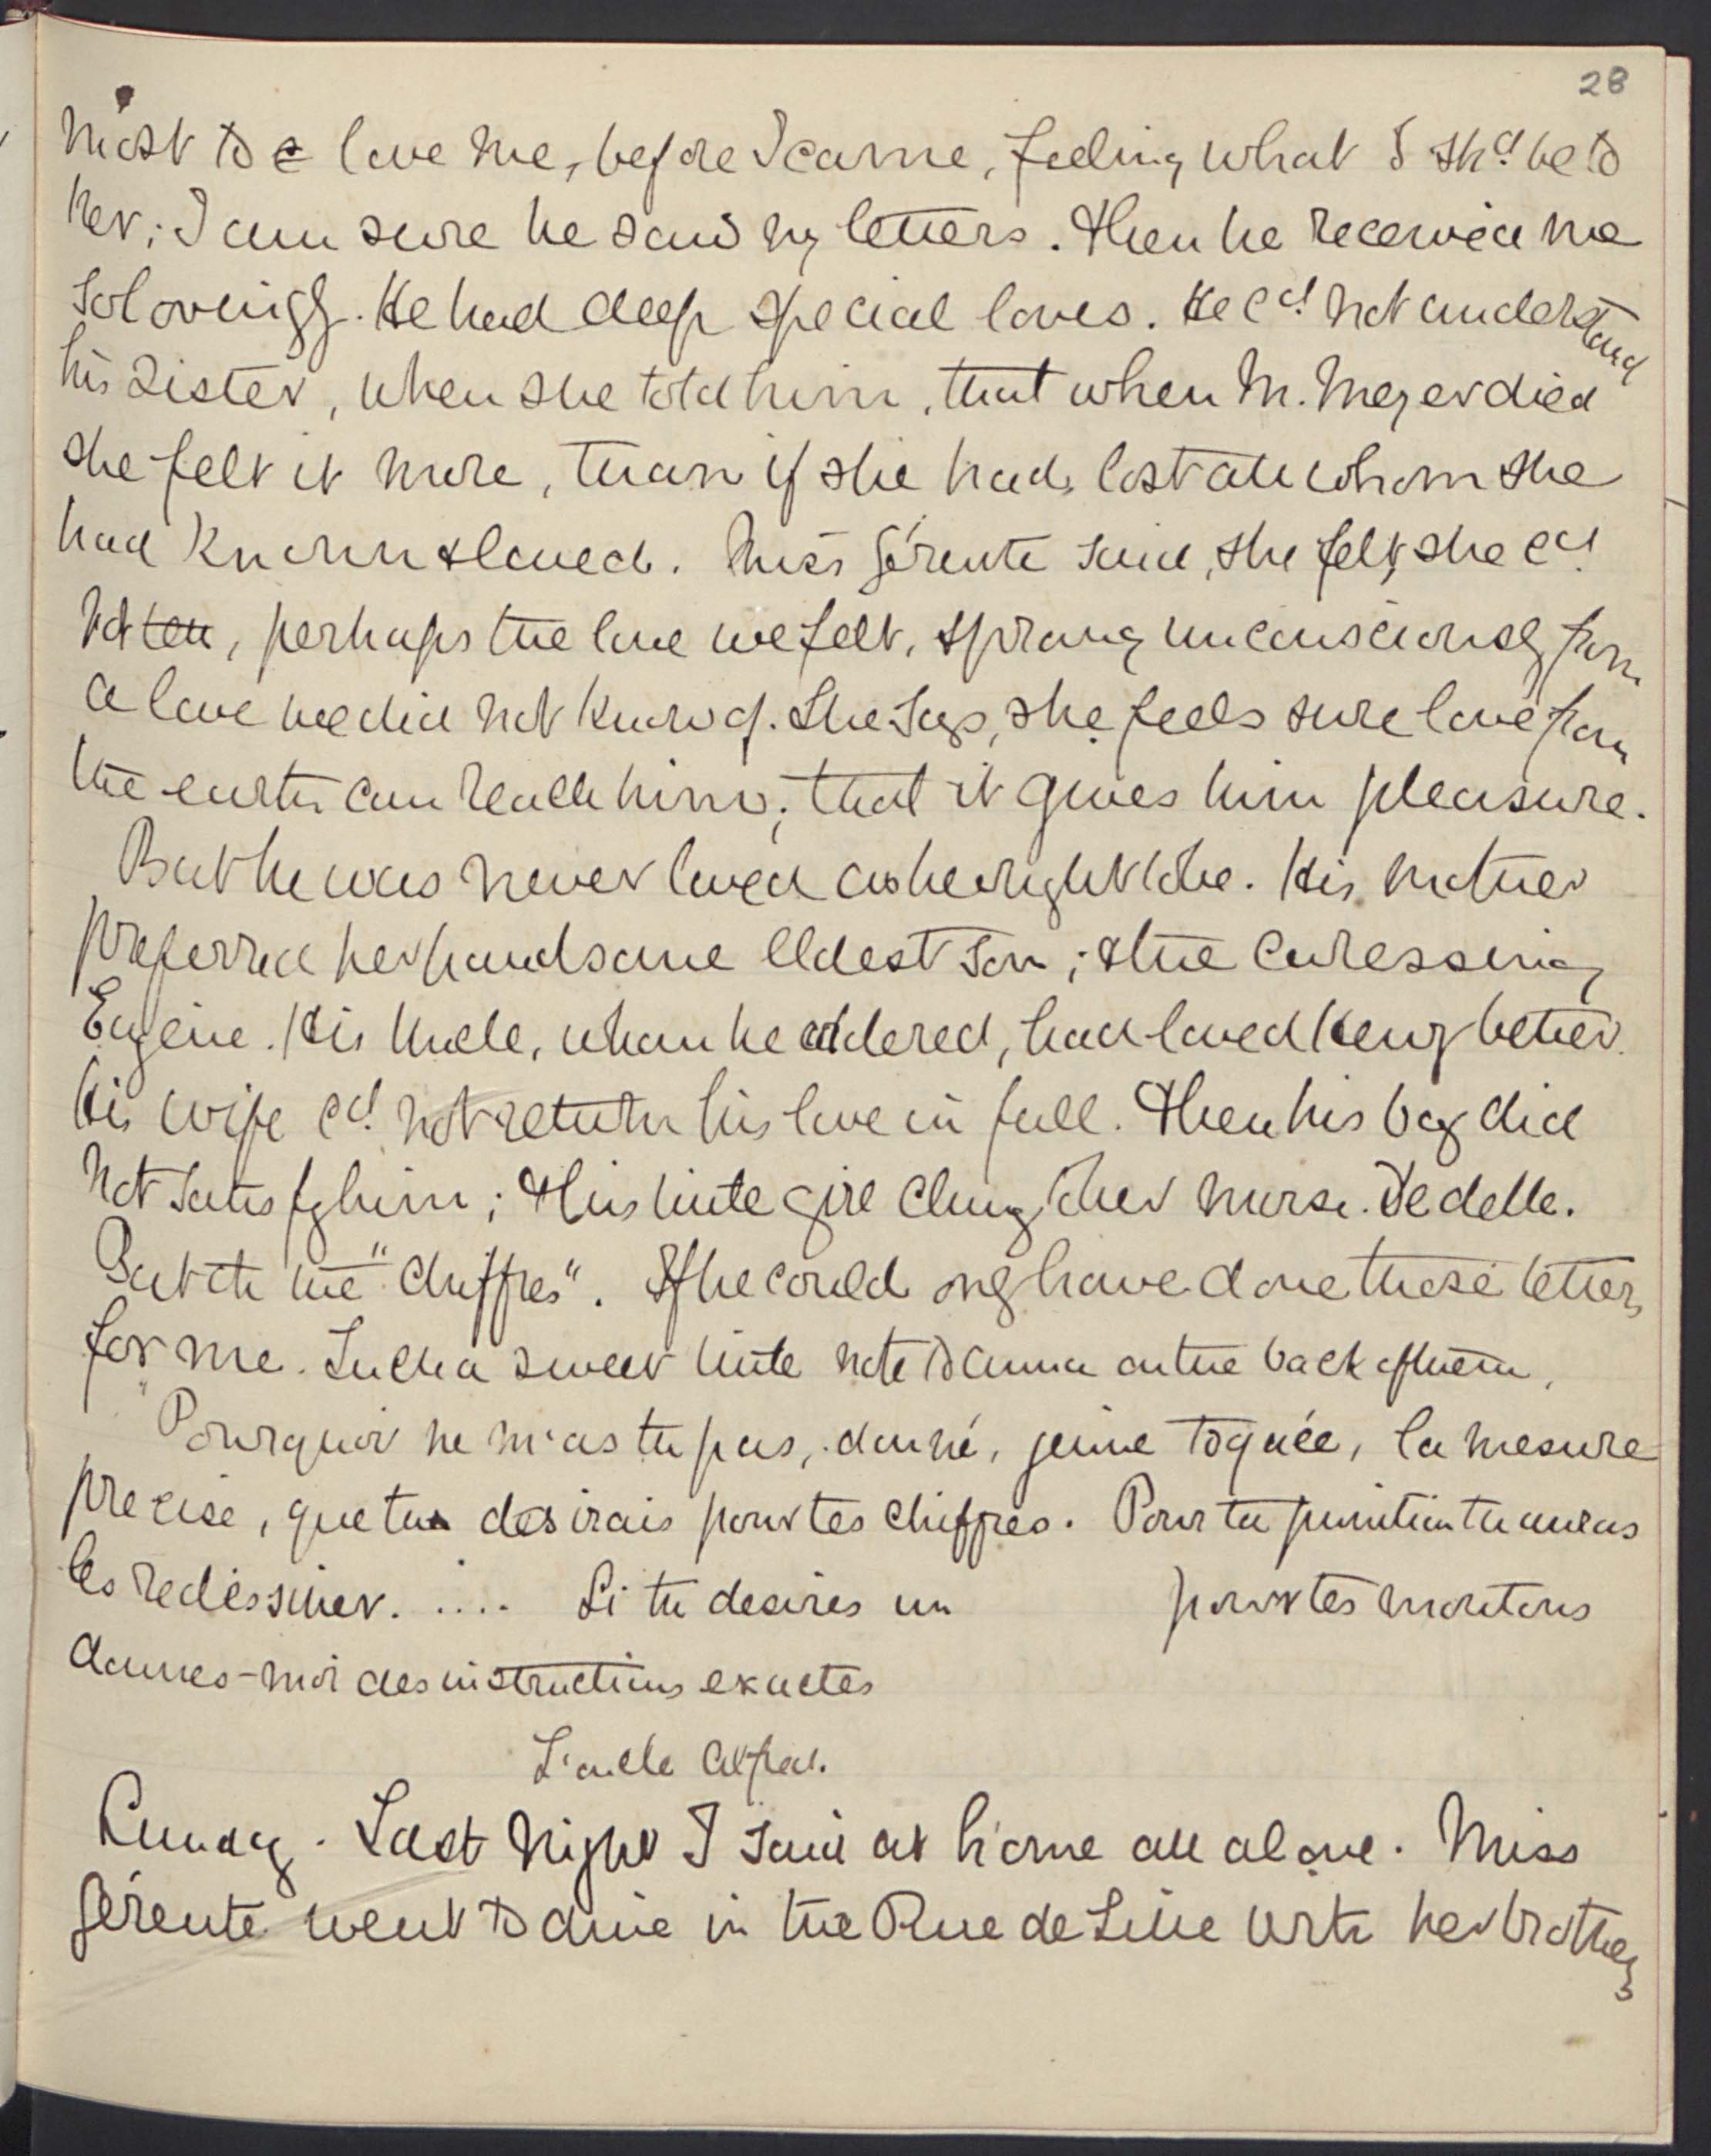 28
most to love me, before I came, feeling what I shd be to
her; I am sure he saw my letters. Then he received me
so lovingly. He had deep special loves. He cd not understand
his sister, when she told him, that when M. Meyer died
she felt it more, than if she had lost all whom she
had known & loved. Miss Gérente said, she felt, she cd
not tell, perhaps the love we felt, sprang unconsciously from
a love we did not know of. She says, she feels sure love from
the earth can reach him; that it gives him pleasure.
But he was never loved as he ought to be. His mother
preferred her handsome eldest son; & the caressing
Eugène. His Uncle, whom he adored, had loved Henry better.
His wife cd not return his love in full. Then his boy did
not satisfy him; & his little girl clung to her nurse. Dedelle.
But oh the "Chiffres". If he could only have done those letters
for me. Such a sweet little note to Anna on the back of them.
"Pourquoi ne m'as tu pas, donné, jeune toquée, la mesure
precise, que tu desirais pour tes chiffres. Pour ta punition tu auras
les redessiner. .... Si tu desires un pour tes moutons
donnes-moi des instructions exactes
L'oncle Alfred.
Sunday. Last night I said at home all alone. Miss
Gérente went to dine in the Rue de Lille with her brothers